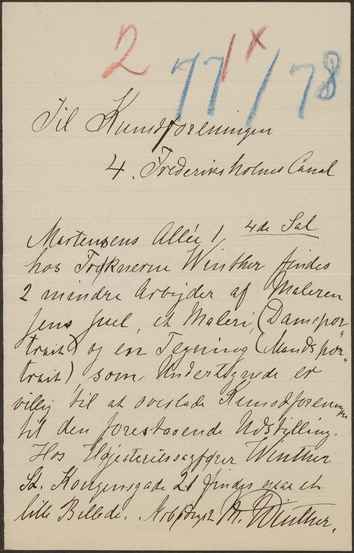 2 77 1x / 78
Til Kunstforeningen
4. Frederiksholms Canal
Martensens Allée 1, 4de Sal
hos Frøknerne Winther findes
2 mindre Arbejder af Maleren
Jens Juel, et Maleri (Damepor-
trait) og en Tegning (Mandspor-
trait) som Undertegnede er
villig til at overlade Kunstforeningen
til den forestaaende Udstilling.
Hos Højesteretssagfører Winther
St. Kongensgade 21 findes et
lille Billede. Winther.